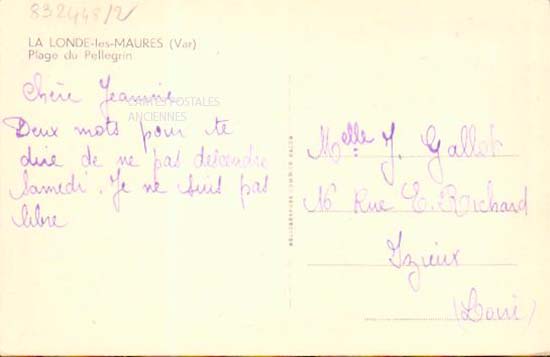 832448/2
LA LONDE-les-MAURES (Var)
Plage du Pellegrin
Chère Jeannine
CARTES POSTALES
ANCIENNES
Deux mots pour te
dire de ne pas descendre
Samedi. Je ne suis pas
libre
Melle J. Gallot
16 Rue E. Richard
Izieux
(Loire)